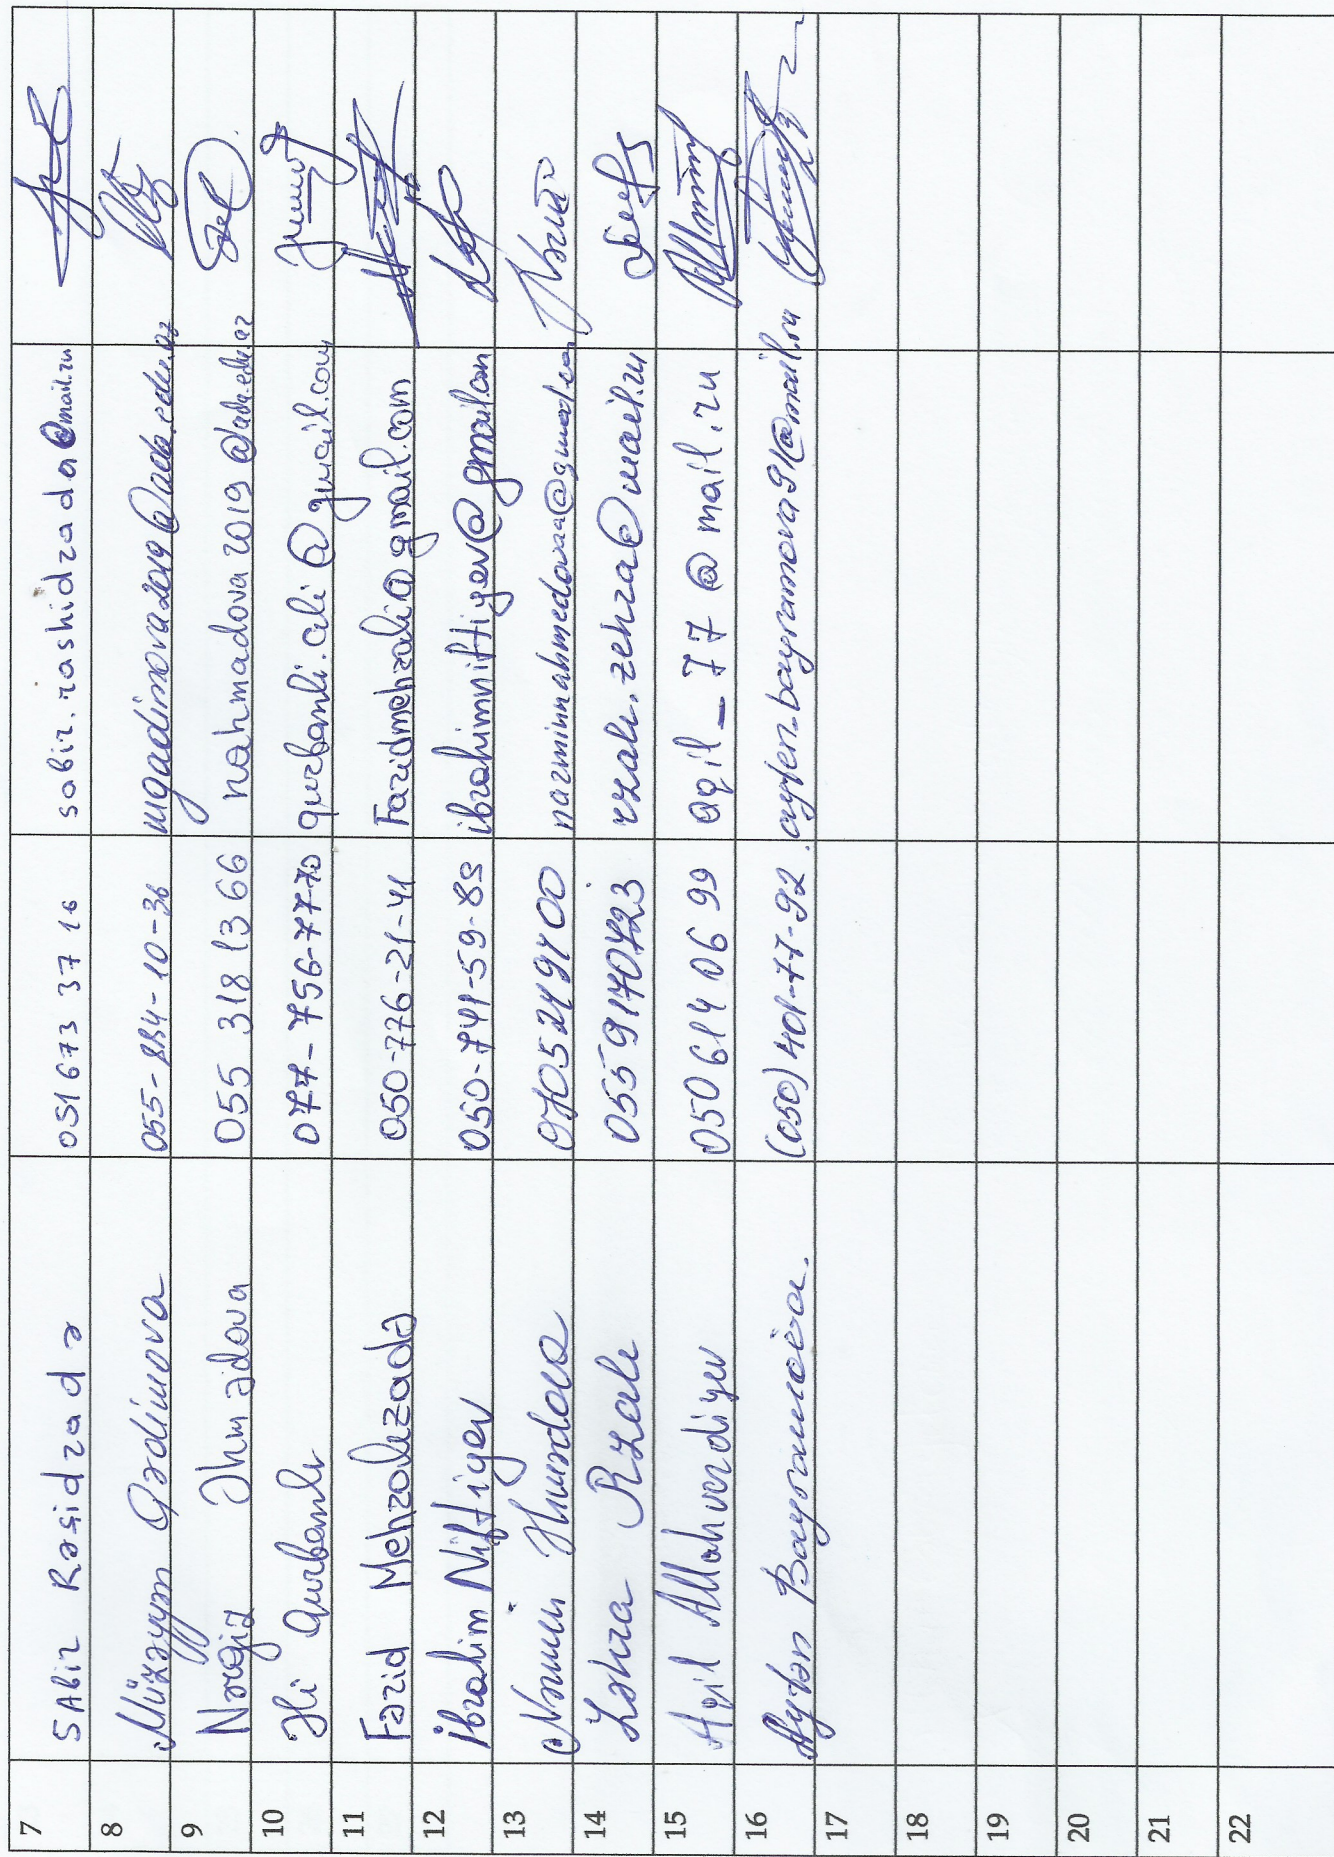 7 SAbir Rəşidzadə 051 673 37 16 sabir.rashidzada@mail.ru
8 Müzəyyəm Qədimova 055-884-10-36 mgadimova2019@ada.edu.az
9 Nərgiz Əhmədova 055 318 13 66 nahmadova2019@ada.edu.az
10 Əli Qurbanlı 077-756-77-70 qurbanli.ali@gmail.com
11 Fərid Mehralızadə 050-776-21-41 Faridmehrali@gmail.com
12 İbrahim Niftiyev 050-741-59-83 ibrahimniftiyev@gmail.com
13 Nərmin Əhmədova 0705249400 narminnahmedovaa@gmail.com
14 Zəhra Rzalı 0559170423 rzali.zehra@mail.ru
15 Aqil Allahverdiyev 050 614 06 99 aqil_77@mail.ru
16 Aytən Bayramova. (050) 401-77-92. ayten.bayramova91@mail.ru
17
18
19
20
21
22